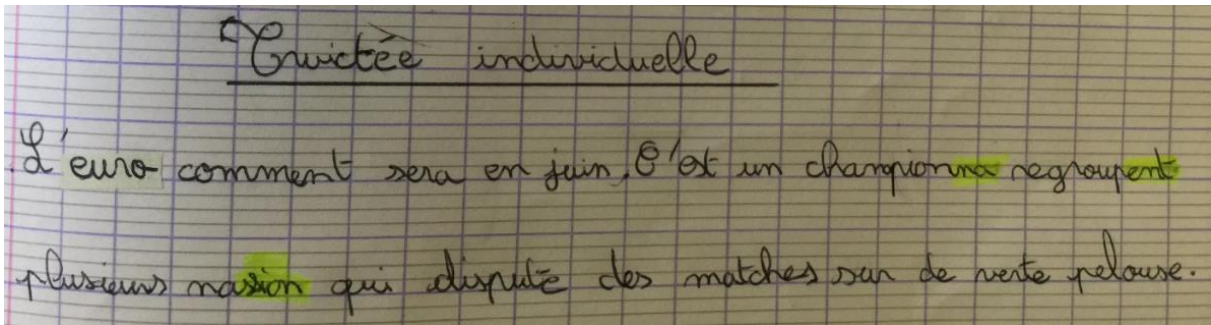 Twictée individuelle
L'euro comment sera en juin. C'est un championna regroupent
plusieurs nasion qui dispute des matches sur de verte pelouse.